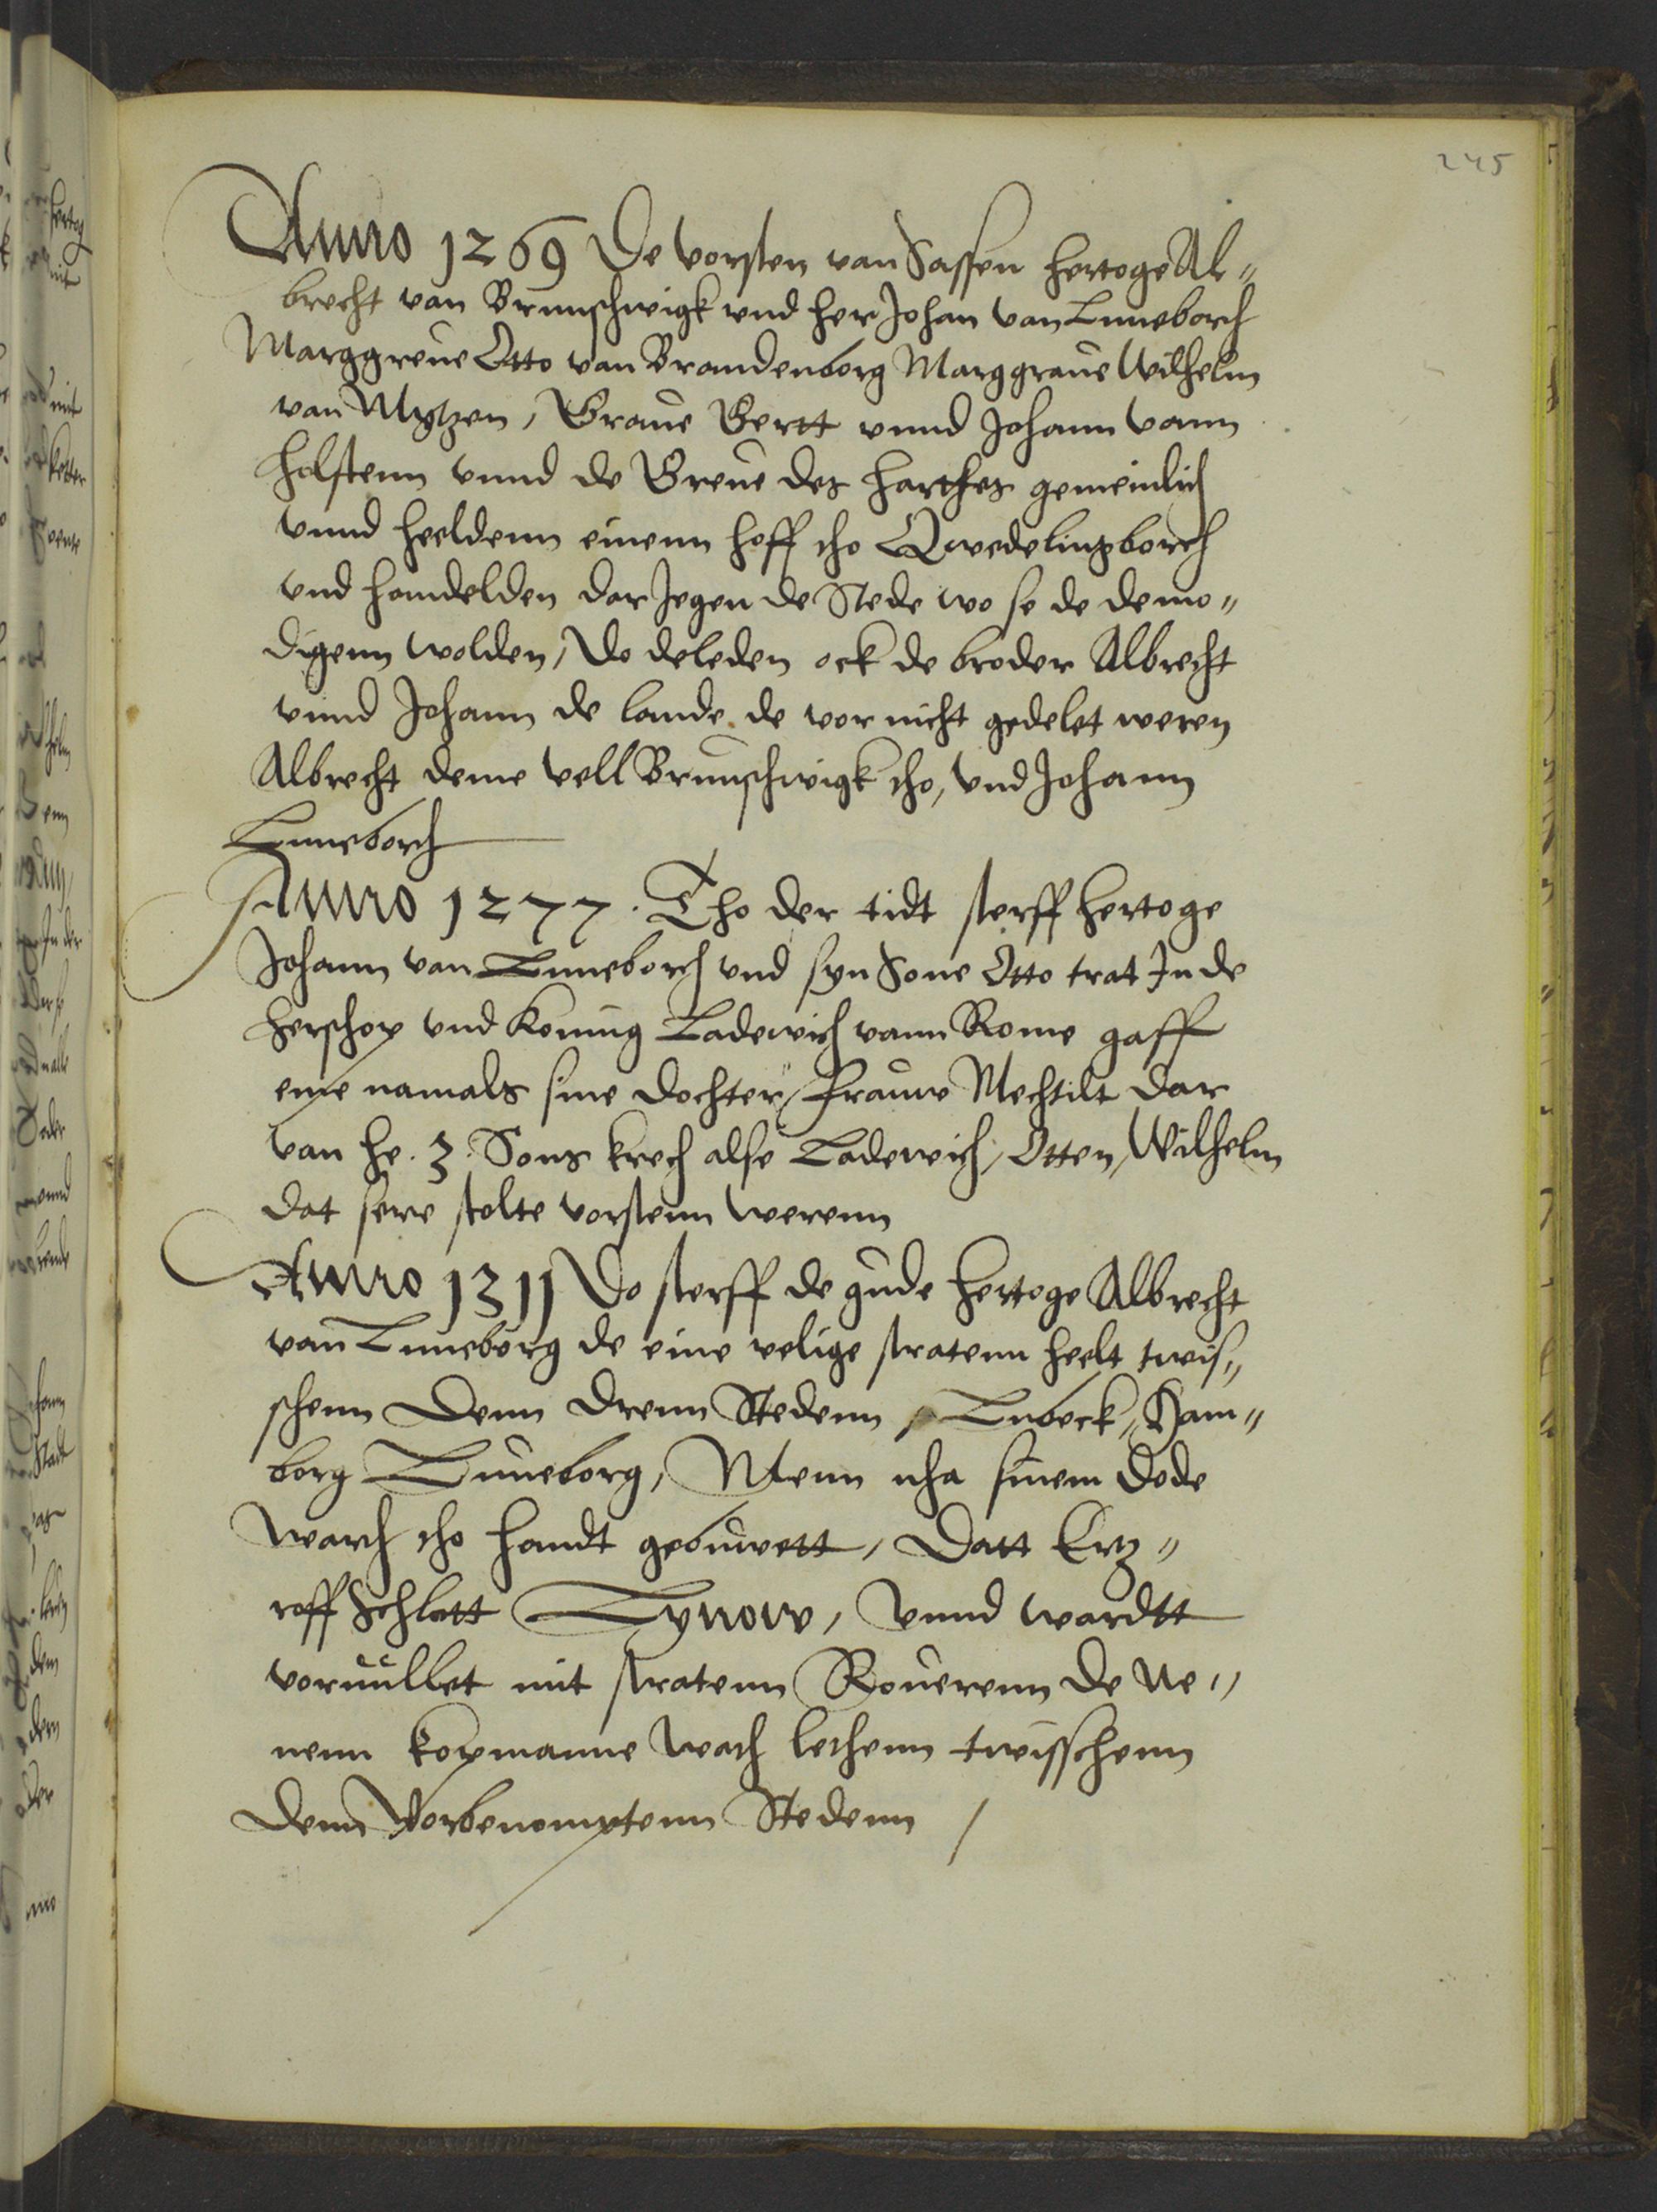 245
Anno 1269 De vorsten van Sassen hertoge Al„
brecht van Brunschwigk vnd her Johan van Luneborch
Marggreue Otto van Brandenborg Marggraue Wilhelm
van Mytzen, Graue Gertt vnnd Johann vann
Holstenn vnnd de Greue des Harthes gemeinlich
vnnd heeldenn einenn hoff tho Qwedelingborch
vnd handelden dar Jegen de Stede wo se de demo„
digenn wolden, Do deleden ock de broder Albrecht
vnnd Johann de lande de vor nicht gedelet weren
Albrecht deme vell Brunschwigk tho, vnd Johann
Luneborch
Anno 1277. Tho der tidt sterff hertoge
Johann van Luneborch vnd syn Sone Otto trat In de
herschop vnd Koning Lodewich vann Rome gaff
eme namals sine dochter, frauwe Mechtilt dar
van he. 3. Sons krech alse Lodewich, Otten, Wilhelm
dat sere stolte vorstenn werenn
Anno 1311 Do sterff de gude hertoge Albrecht
van Luneborg de eine velige stratenn heelt twis„
schenn denn drenn Stedenn, Lubeck, Ham„
borg Luneborg, Menn nha sinem dode
warch tho handt gebuwett, Datt Ertz„
roff Schlott Lynow, vnnd wardtt
voruullet mit stratenn Rouerenn de ne„
nenn kopmanne wach lethenn twisschenn
denn Vorbenomptenn Stedenn /